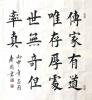 传家有道
唯存厚處
世無奇但
率真